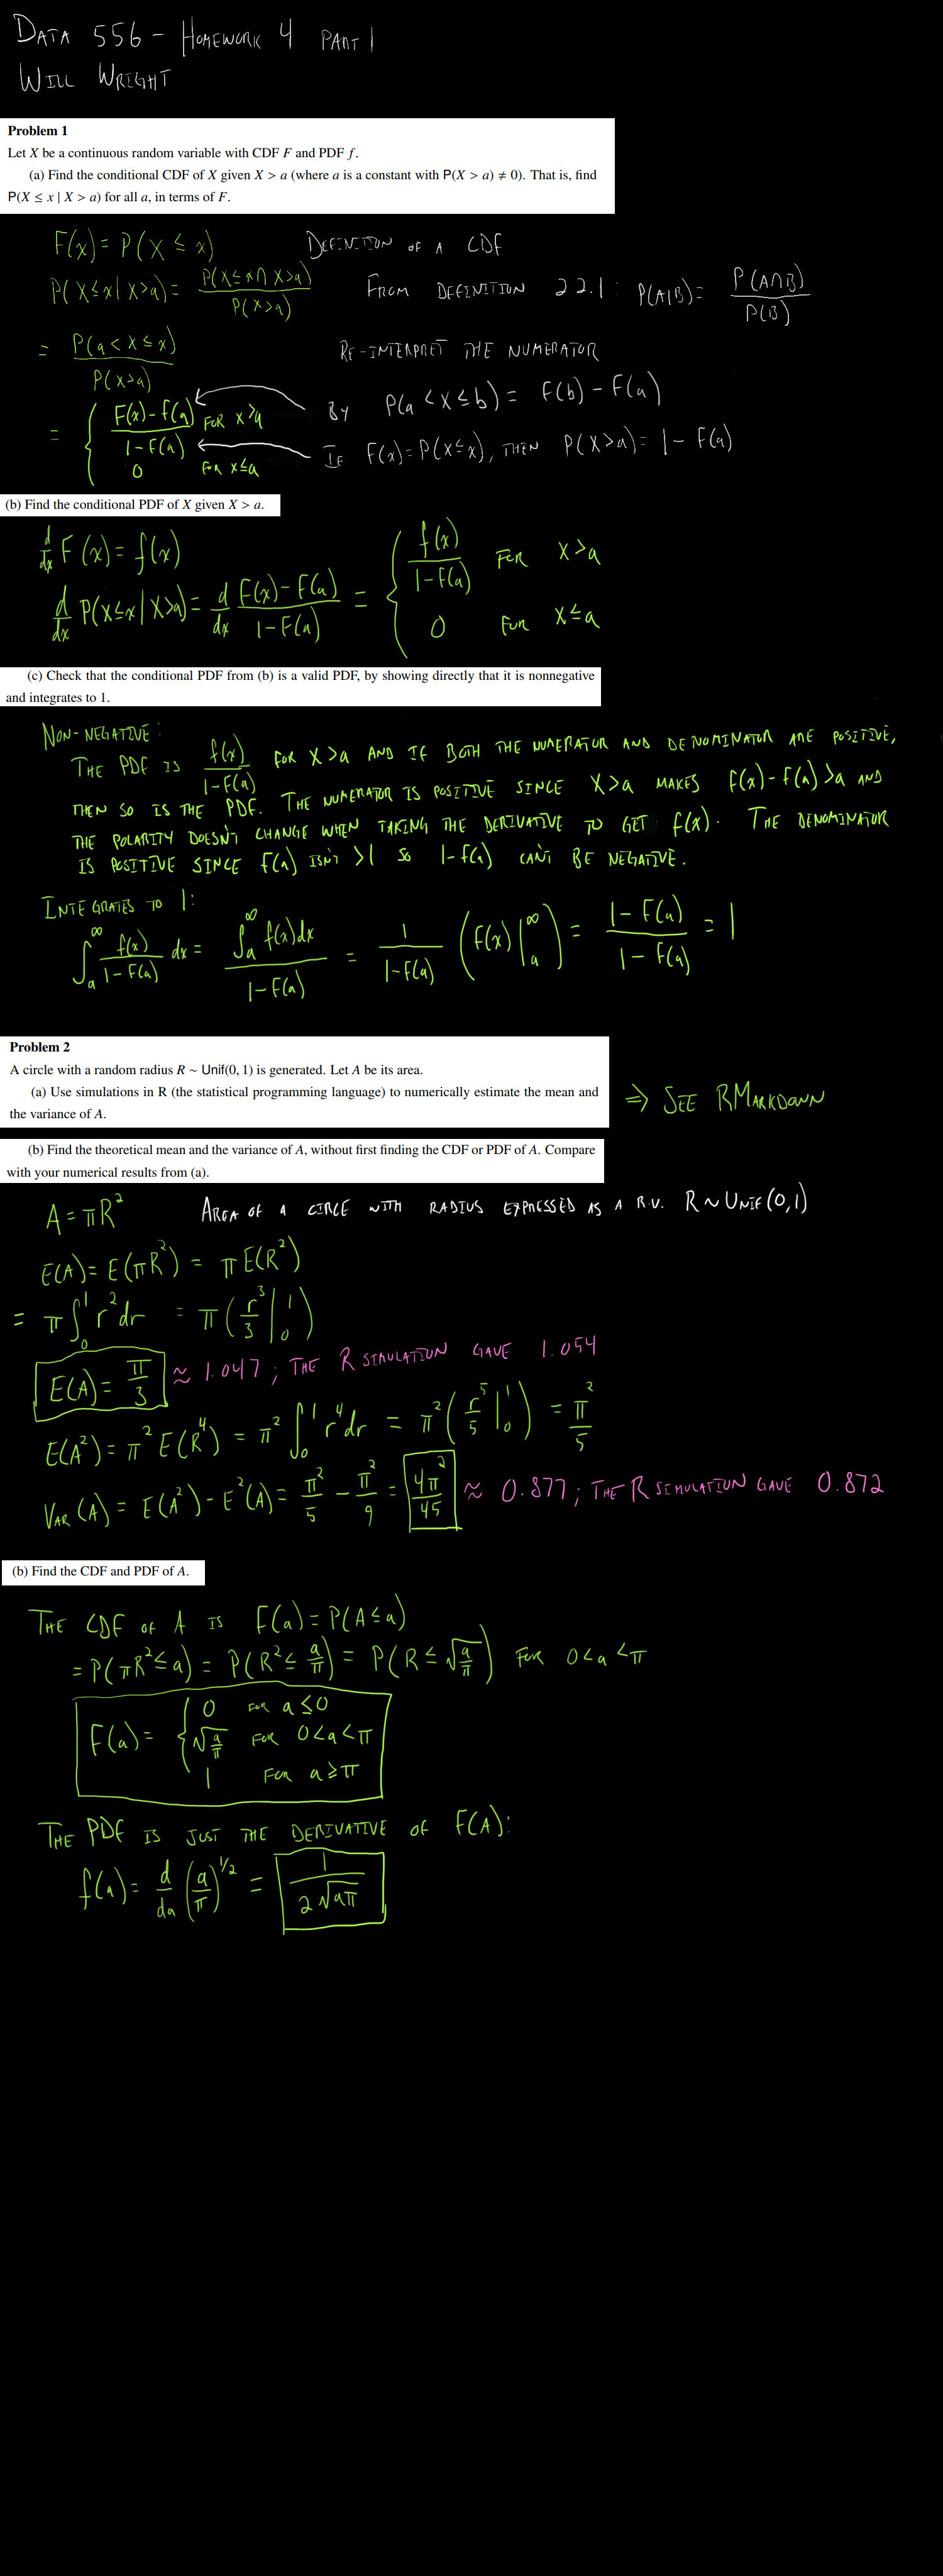 DATA 556 - HOMEWORK 4 PART 1
WILL WRIGHT
Problem 1
Let X be a continuous random variable with CDF F and PDF f.
(a) Find the conditional CDF of X given X > a (where a is a constant with P(X > a) ≠ 0). That is, find
P(X ≤ x | X > a) for all a, in terms of F.
F(x) = P(X ≤ x) DEFINITION OF A CDF
P(X ≤ x | X > a) = P(X ≤ x ∩ X > a) / P(X > a) FROM DEFINITION 2.2.1: P(A|B) = P(A∩B) / P(B)
= P(a < X ≤ x) / P(X > a) RE-INTERPRET THE NUMERATOR
= { F(x) - F(a) / 1 - F(a) FOR x > a BY P(a < X ≤ b) = F(b) - F(a)
0 FOR x ≤ a IF F(x) = P(X ≤ x), THEN P(X > a) = 1 - F(a)
(b) Find the conditional PDF of X given X > a.
d/dx F(x) = f(x)
d/dx P(X ≤ x | X > a) = d/dx F(x) - F(a) / 1 - F(a) = { f(x) / 1 - F(a) FOR X > a
0 FOR X ≤ a
(c) Check that the conditional PDF from (b) is a valid PDF, by showing directly that it is nonnegative
and integrates to 1.
NON-NEGATIVE:
THE PDF IS f(x) / 1 - F(a) FOR X > a AND IF BOTH THE NUMERATOR AND DENOMINATOR ARE POSITIVE,
THEN SO IS THE PDF. THE NUMERATOR IS POSITIVE SINCE X > a MAKES F(x) - F(a) > a AND
THE POLARITY DOESN'T CHANGE WHEN TAKING THE DERIVATIVE TO GET f(x). THE DENOMINATOR
IS POSITIVE SINCE F(a) ISN'T > 1 SO 1 - F(a) CAN'T BE NEGATIVE.
INTEGRATES TO 1:
∫_a^∞ f(x) / 1 - F(a) dx = ∫_a^∞ f(x)dx / 1 - F(a) = 1 / 1 - F(a) (F(x)|_a^∞) = 1 - F(a) / 1 - F(a) = 1
Problem 2
A circle with a random radius R ~ Unif(0, 1) is generated. Let A be its area.
(a) Use simulations in R (the statistical programming language) to numerically estimate the mean and
the variance of A.
⇒ SEE RMARKDOWN
(b) Find the theoretical mean and the variance of A, without first finding the CDF or PDF of A. Compare
with your numerical results from (a).
A = πR² AREA OF A CIRCLE WITH RADIUS EXPRESSED AS A R.V. R ~ UNIF(0,1)
E(A) = E(πR²) = π E(R²)
= π ∫_0^1 r² dr = π (r³/3 |_0^1)
E(A) = π/3 ≈ 1.047; THE R SIMULATION GAVE 1.054
E(A²) = π² E(R⁴) = π² ∫_0^1 r⁴ dr = π² (r⁵/5 |_0^1) = π²/5
VAR(A) = E(A²) - E²(A) = π²/5 - π²/9 = 4π²/45 ≈ 0.877; THE R SIMULATION GAVE 0.872
(b) Find the CDF and PDF of A.
THE CDF OF A IS F(a) = P(A ≤ a)
= P(πR² ≤ a) = P(R² ≤ a/π) = P(R ≤ √(a/π)) FOR 0 < a < π
F(a) = { 0 FOR a ≤ 0
√(a/π) FOR 0 < a < π
1 FOR a ≥ π
THE PDF IS JUST THE DERIVATIVE OF F(A):
f(a) = d/da (a/π)^1/2 = 1 / 2√(aπ)